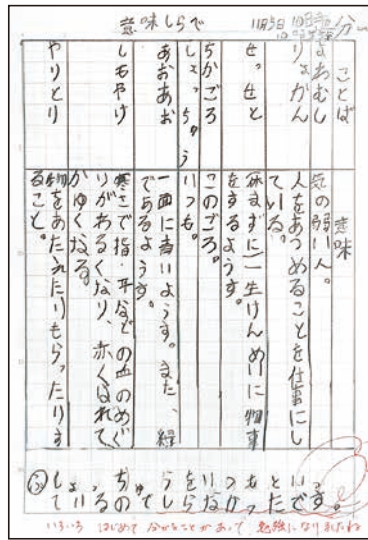 11月5日
意味しらべ
ことば
意味
よわむし
気の弱い人。
りょかん
人をあつめることを仕事にし
ている。
せっせと
休まずに一生けんめいに物事
をするようす。
ちかごろ
このごろ。
しょっちゅう
いつも。
あおあお
一面に青いようす。また、緑
であるようす。
しもやけ
寒さで指・耳などの血のめぐ
りがわるくなり、赤くはれて
かゆくなる。
やりとり
物をあたえたりもらったりす
ること。
しょっちゅう いつもとい
しらなかったです。
いろいろ はじめて 分かることがあって 勉強になりましたね